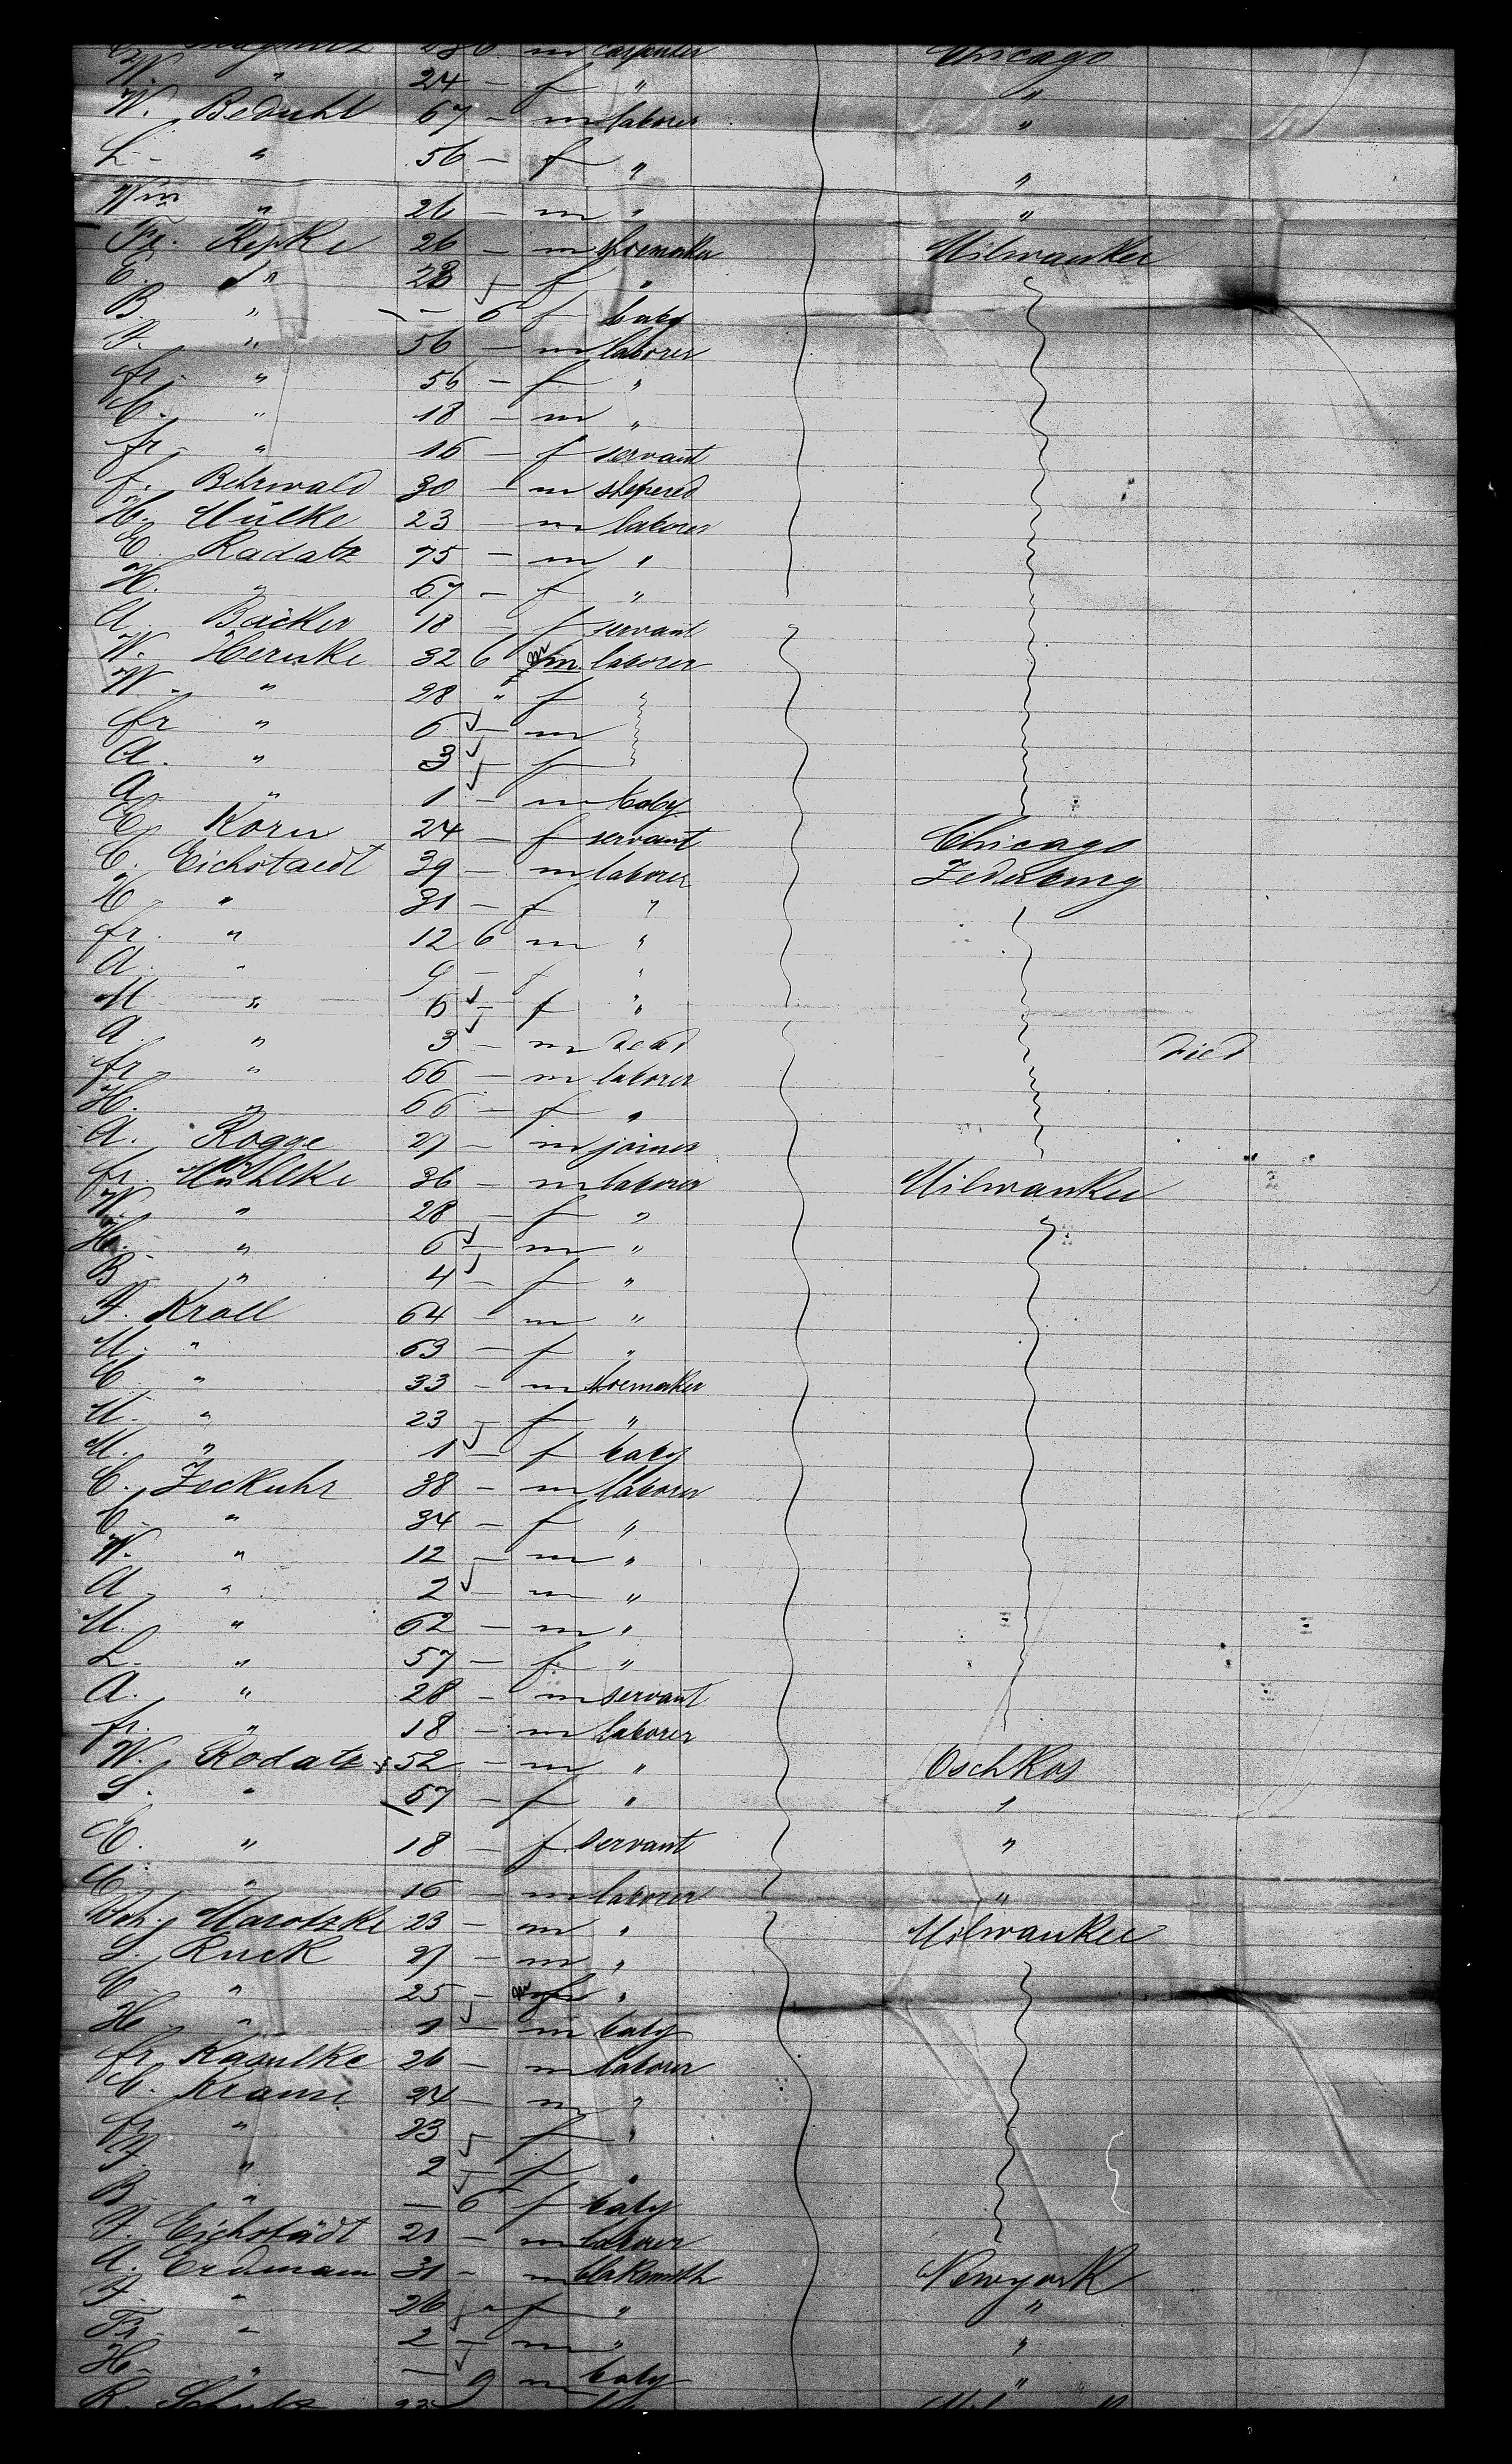 carpenter Chicago
W. " 24 - f " "
W. Beduhl 67 - m laborer "
L - " 56 - f " "
Wm " 26 - m " "
Fr. Repke 26 - m shoemaker Milwaukee
E. " 28 - f "
B. " - - 6 f baby
F. " 56 - m laborer
fr - " 56 - f "
C. " 18 - m "
fr - " 16 - f servant
f. Behrwald 30 - m shepered
H. Mülke 23 - m laborer
C. Radatz 75 - m "
H. " 67 - f "
A. Bäcker 18 - f servant
W. Hernke 32 6 m laborer
W. " 28 " f "
fr " 6 - m
A. " 3 - f
A " 1 - m baby
E. Korn 24 - f servant Chicago
C. Eichstaedt 39 - m laborer Zederburg
H " 31 - f "
fr. " 12 6 m "
A. " 9 - f "
M " 6 - f "
A. " 3 - m dead died
fr - " 66 - m laborer
H. " 66 - f "
A. Rogge 27 - m joiner
fr. Mühlke 36 - m laborer Milwaukee
W. " 28 - f "
H. - " 6 - m "
B - " 4 - f "
F. Kroll 64 - m "
M. " 63 - f "
C " 33 - m shoemaker
M. " 23 - f "
M. " 1 - f baby
C. Zeckuhr 38 - m laborer
C - " 34 - f "
W. " 12 - m "
A " 2 - m "
M. " 62 - m "
L - " 57 - f "
A. " 28 - m servant
fr. " 18 - m laborer
W. Rodatz 52 - m " Oschkos
S. " 57 - f " "
E. " 18 - f servant "
C " 16 - m laborer "
Joh. Marotzke 23 - m " Milwaukee
S. Ruck 27 - m "
C " 25 - "
H. " 1 - m baby
fr. Kasulke 26 - m laborer
C. Krause 24 - m "
fr " 23 - f "
F. " 2 - f "
B - " - 6 f baby
F. Eichstädt 21 - m laborer
A. Erdmann 31 - m blaksmith Newyork
F. " 26 - f " "
Fr - " 2 - m " "
H - " - 9 m baby "
R. Schulz